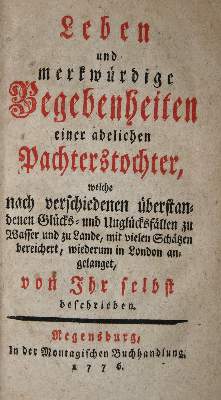 Leben
und
merkwürdige
Begebenheiten
einer adelichen
Pachterstochter,
welche
nach verschiedenen überstan-
denen Glücks- und Unglücksfällen zu
Wasser und zu Lande, mit vielen Schätzen
bereichert, wiederum in London an-
gelanget,
von Ihr selbst
beschrieben.
Regensburg,
In der Montagischen Buchhandlung.
1776.